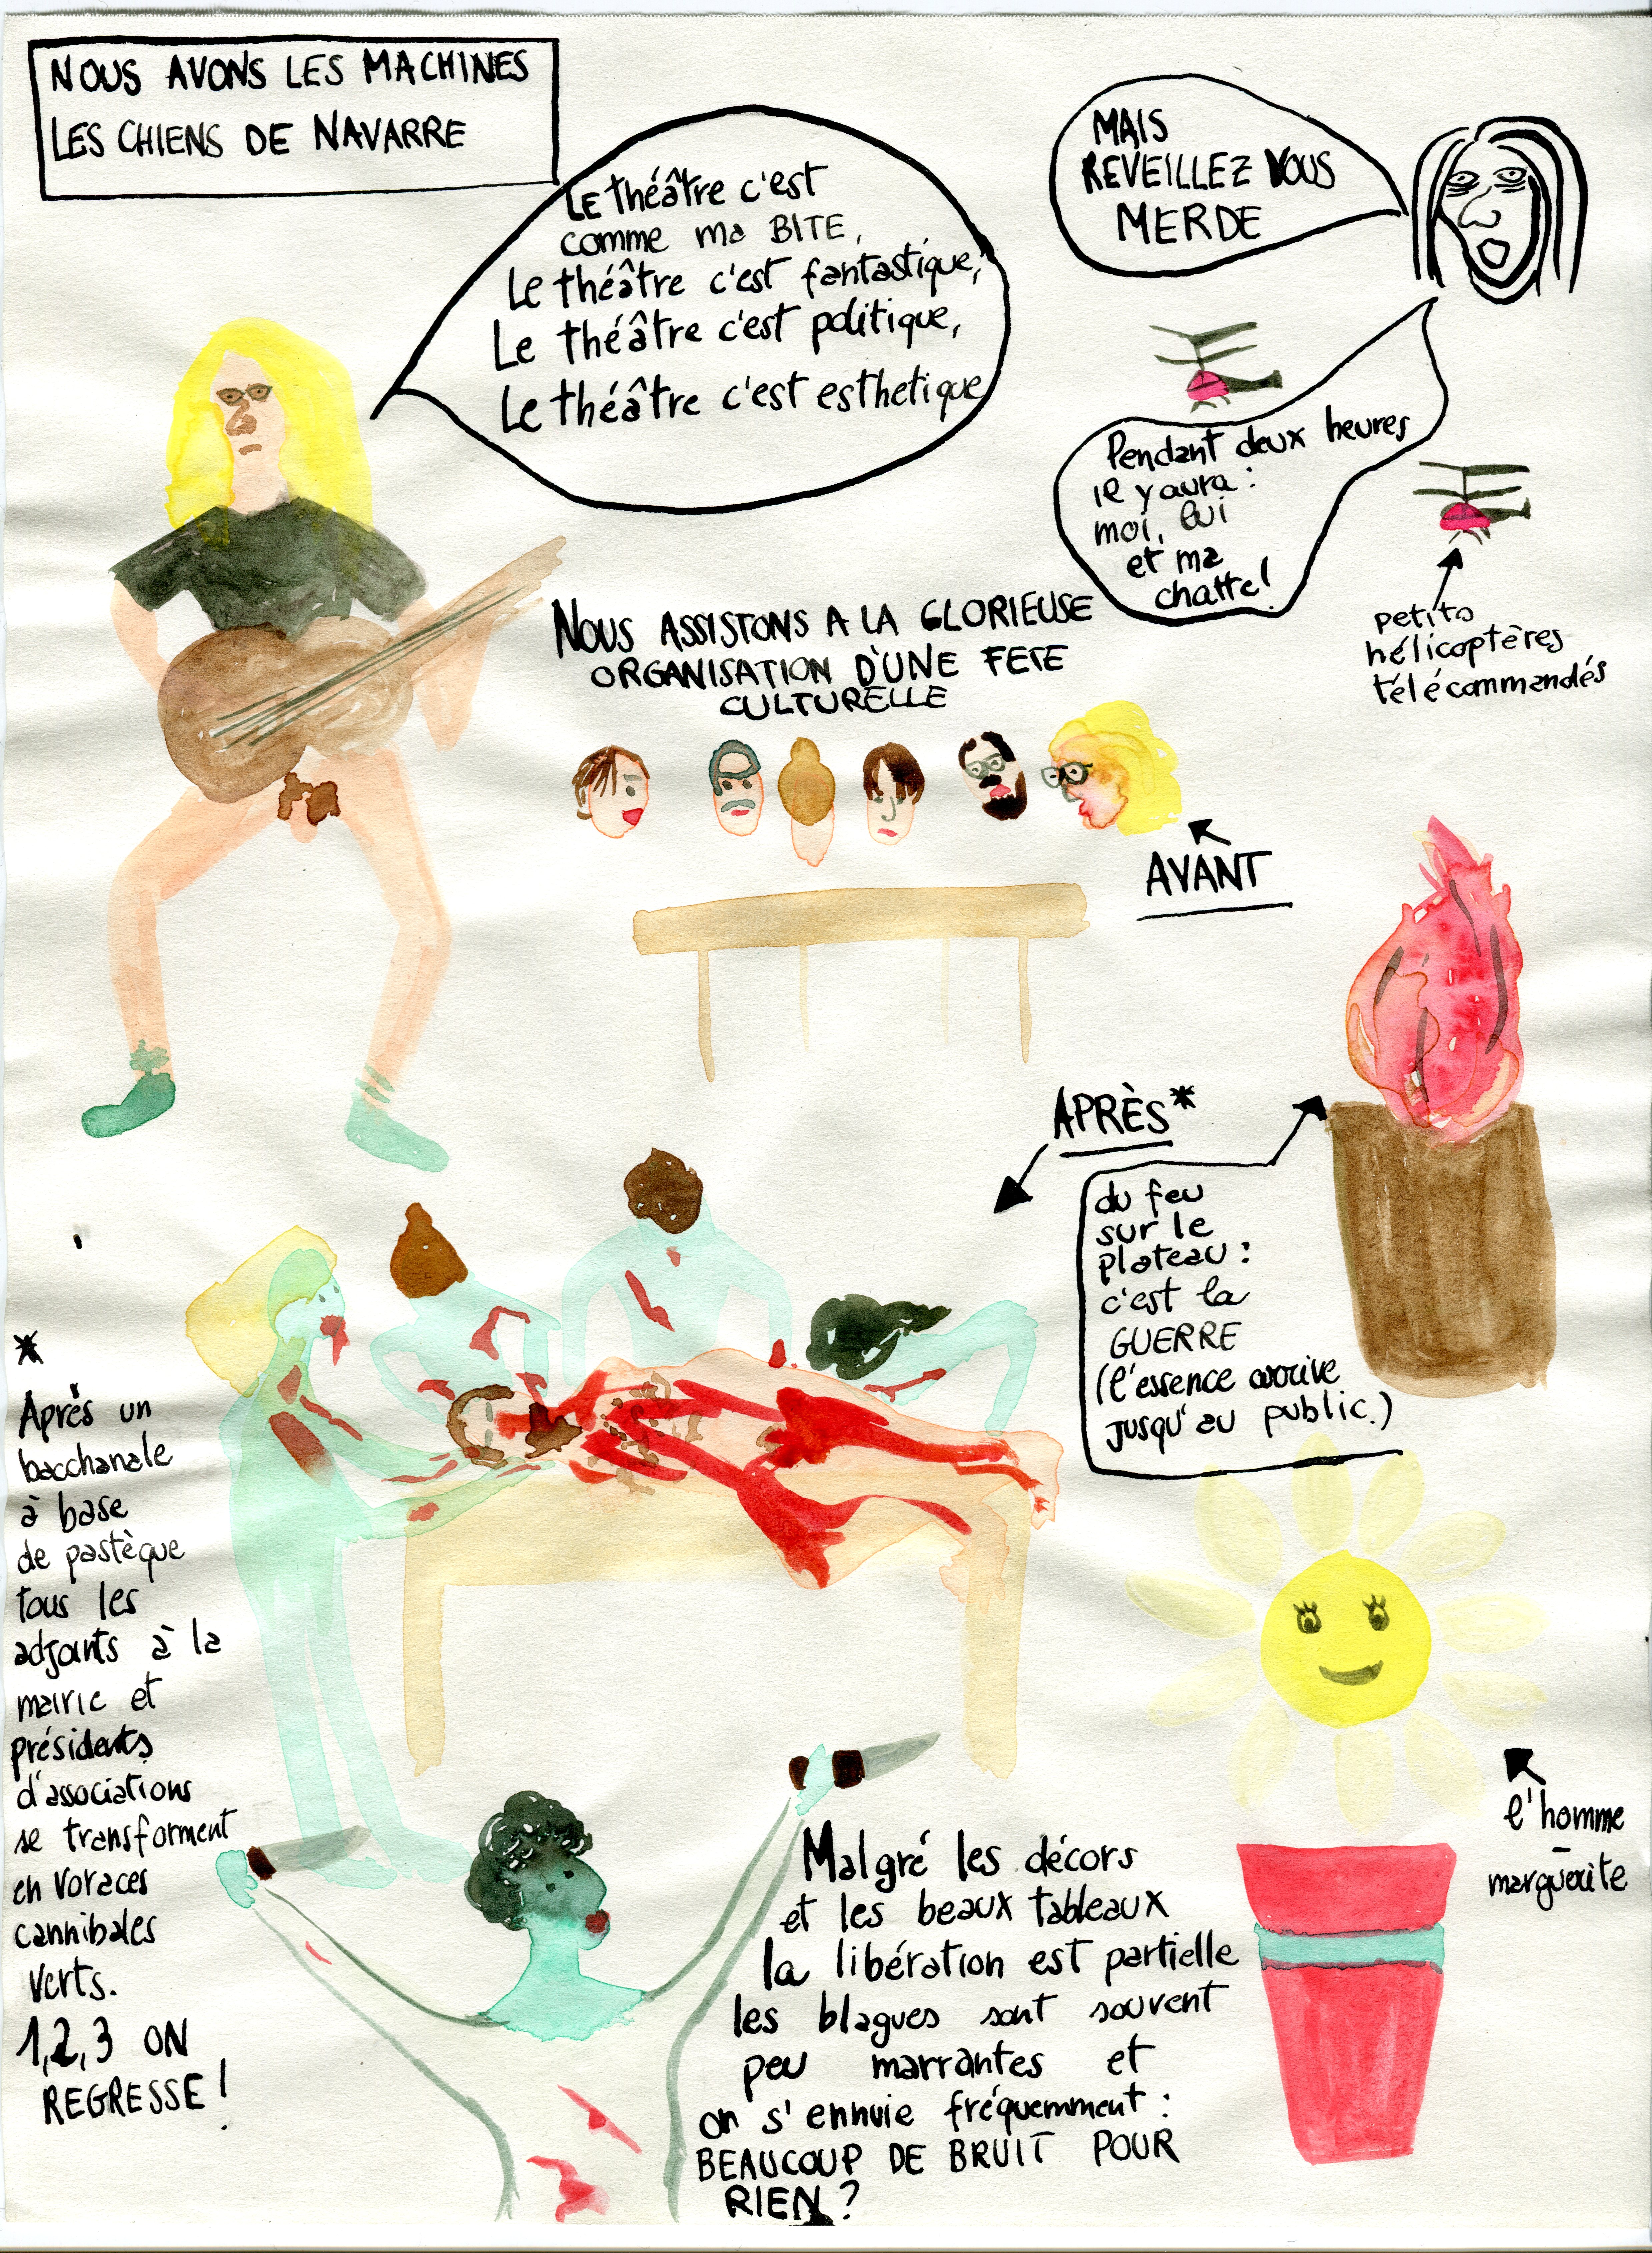 NOUS AVONS LES MACHINES
LES CHIENS DE NAVARRE
LE théâtre c'est
comme ma BITE,
Le théâtre c'est fantastique,
Le théâtre c'est politique,
Le théâtre c'est esthetique
MAIS
REVEILLEZ VOUS
MERDE
Pendant deux heures
il y aura :
moi, lui
et ma
chatte!
petits
hélicoptères
télécommandés
NOUS ASSISTONS A LA GLORIEUSE
ORGANISATION D'UNE FETE
CULTURELLE
AVANT
APRÈS*
du feu
sur le
plateau :
c'est la
GUERRE
(l'essence arrive
jusqu'au public.)
*
Après un
bacchanale
à base
de pastèque
tous les
adjoints à la
mairie et
présidents
d'associations
se transforment
en voraces
cannibales
verts.
1,2,3 ON
REGRESSE !
l'homme
-
marguerite
Malgré les décors
et les beaux tableaux
la libération est partielle
les blagues sont souvent
peu marrantes et
on s'ennuie fréquemment :
BEAUCOUP DE BRUIT POUR
RIEN ?